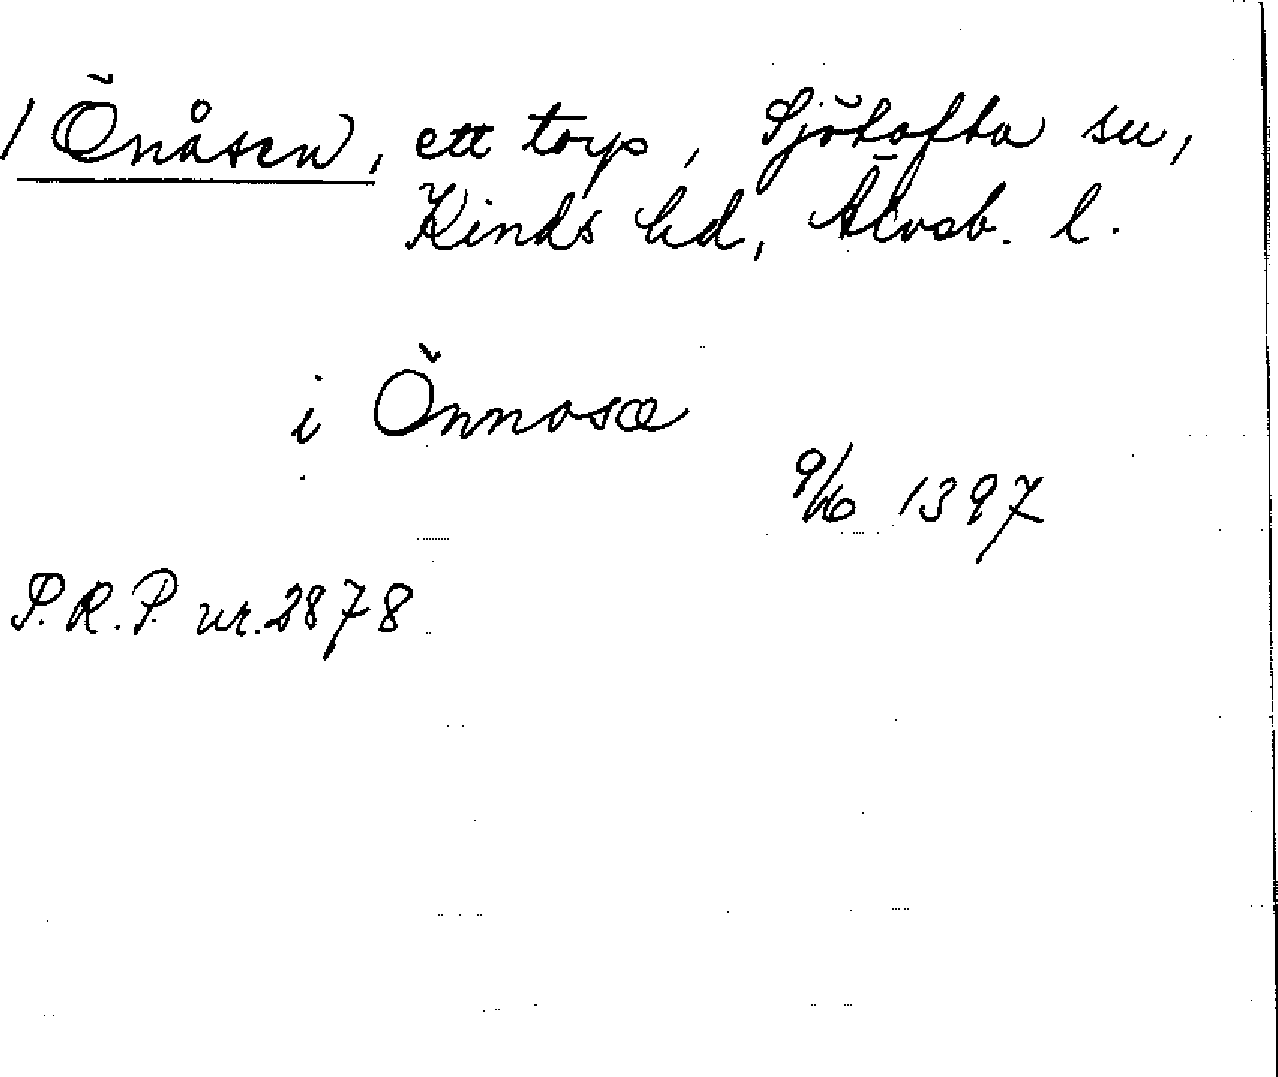 / Önåsen, ett torp, Sjötofta sn,
Kinds hd, Älvsb. l.
i Önnosa
9/10 1397
P.R.P. nr. 2878